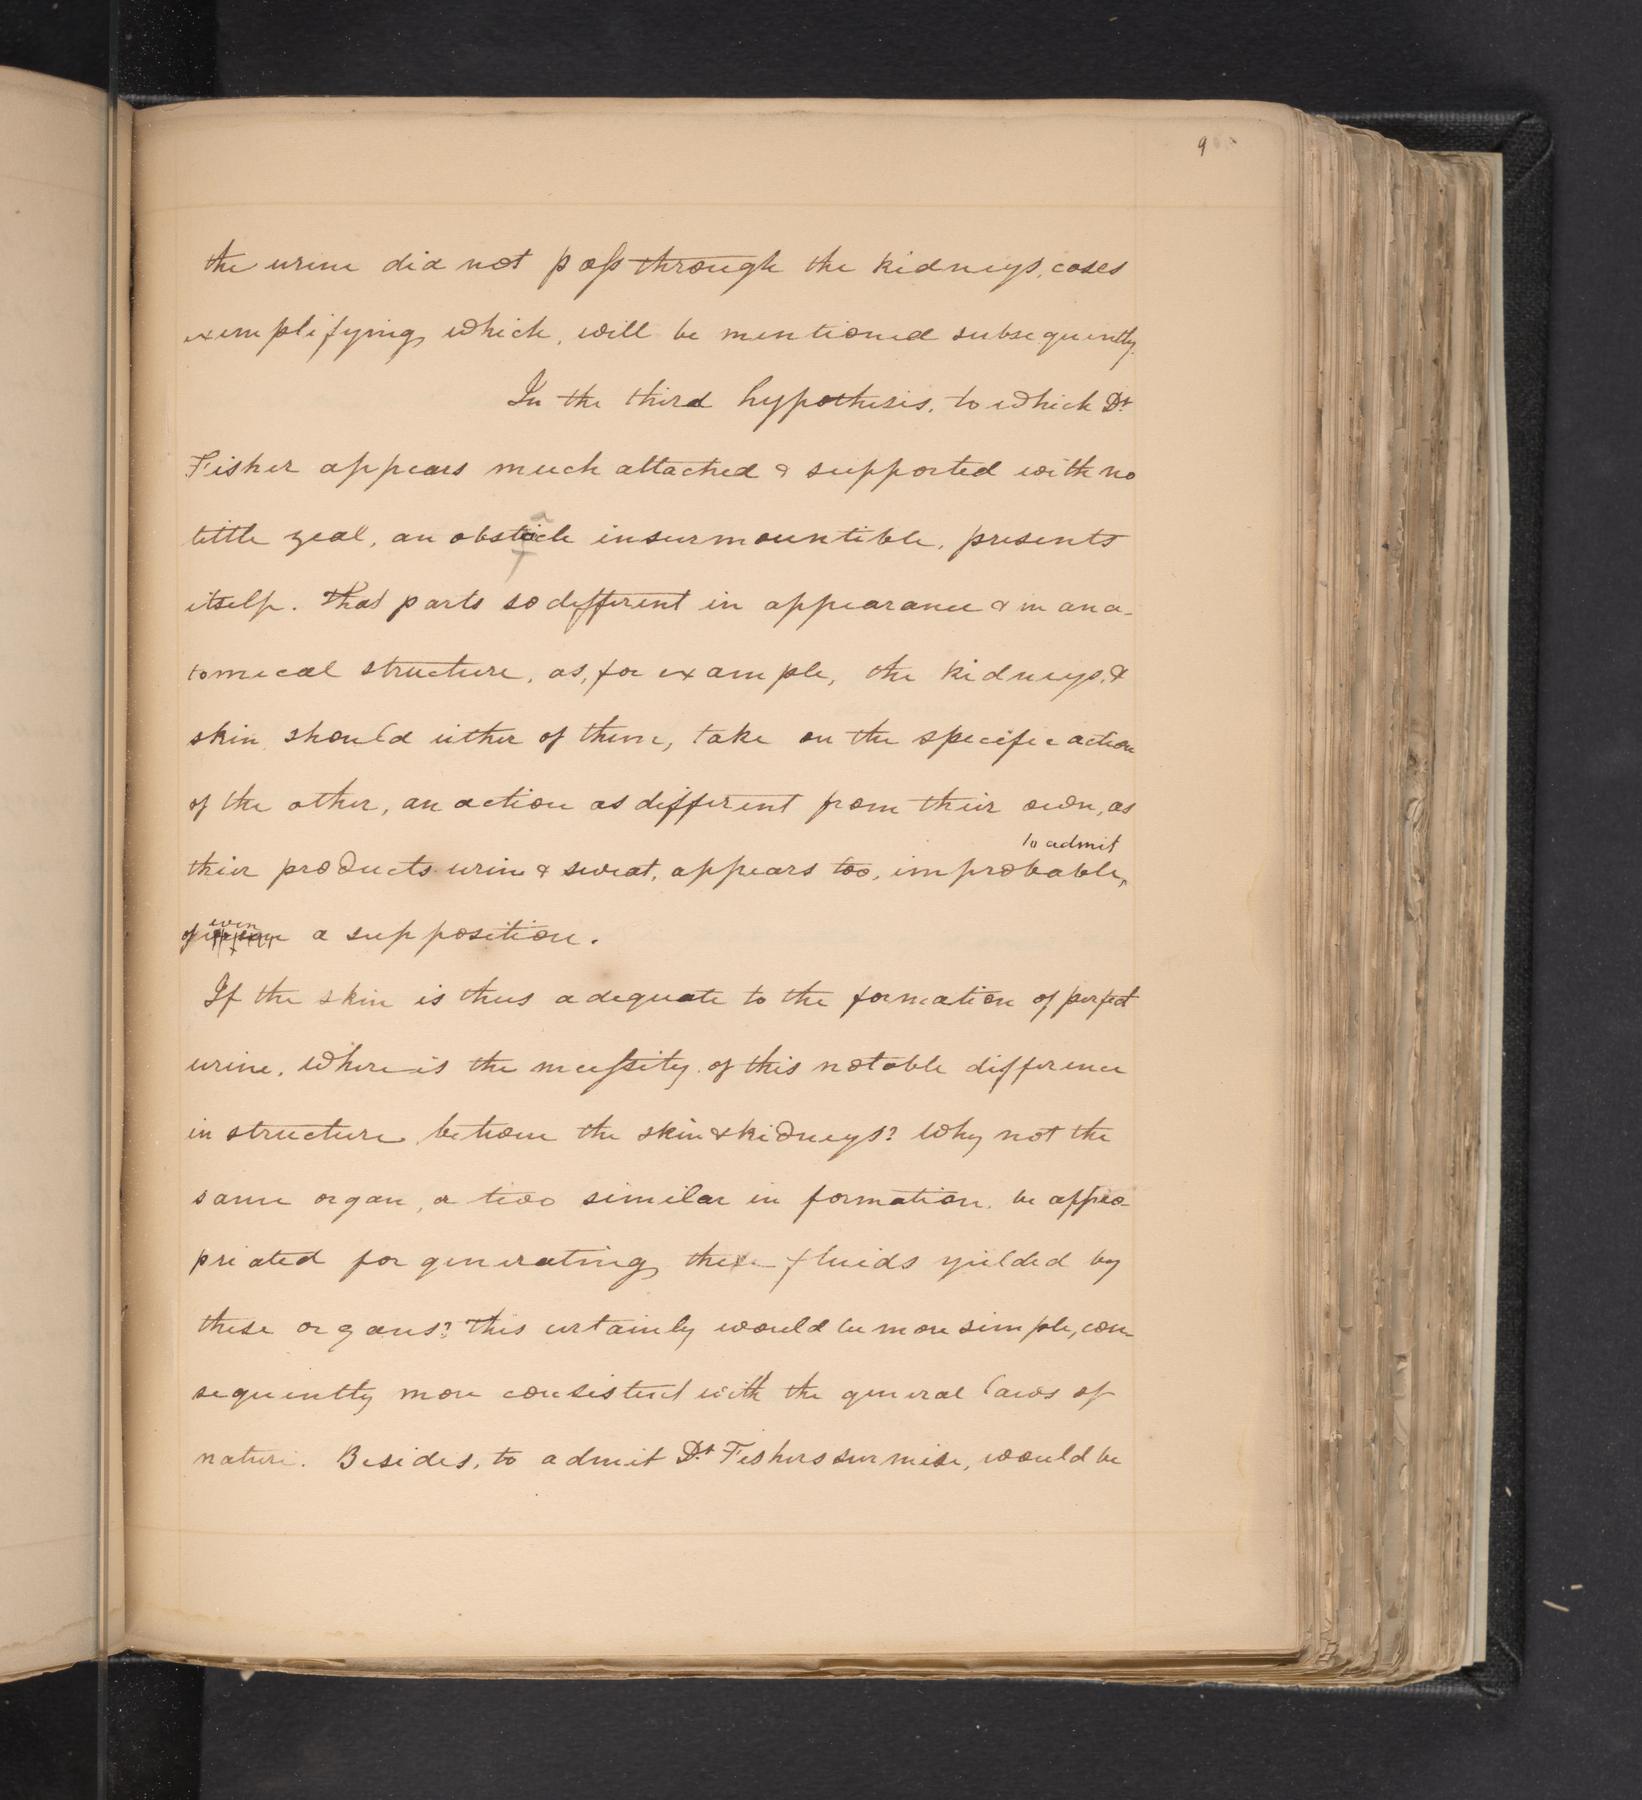 9
the urine did not pass through the kidneys, cases
exemplifying which, will be mentioned subsequently.
In the third hypothesis, to which Dr
Fisher appears much attached & supported with no
little zeal, an obsticle insurmountible, presents
itself. That parts so different in appearance & in ana-
tomical structure, as, for example, the kidneys, &
skin should either of them, take on the specific action
of the other, an action as different from their own, as
to admit
their products urine & sweat, appears too, improbable,
of even a supposition.
If the skin is thus adequate to the formation of perfect
urine, where is the necessity of this notable difference
in structure between the skin & kidneys? Why not the
same organ, or two similar in formation, be appro-
priated for generating these fluids yielded by
these organs? This certainly would be more simple, con-
sequently more consistent with the general laws of
nature. Besides, to admit Dr. Fishers surmise, would be